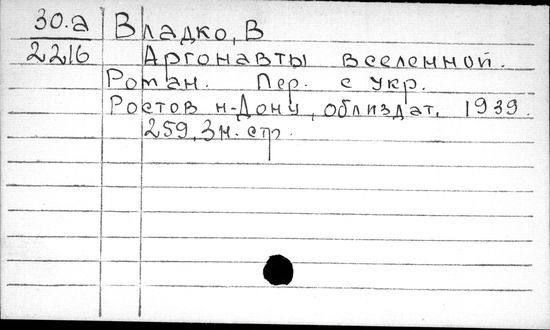 30.а Владко, В
2216 Аргонавты вселенной.
Роман. Пер. с укр.
Ростов н-Дону, облиздат, 1939.
259, 3 н. стр.